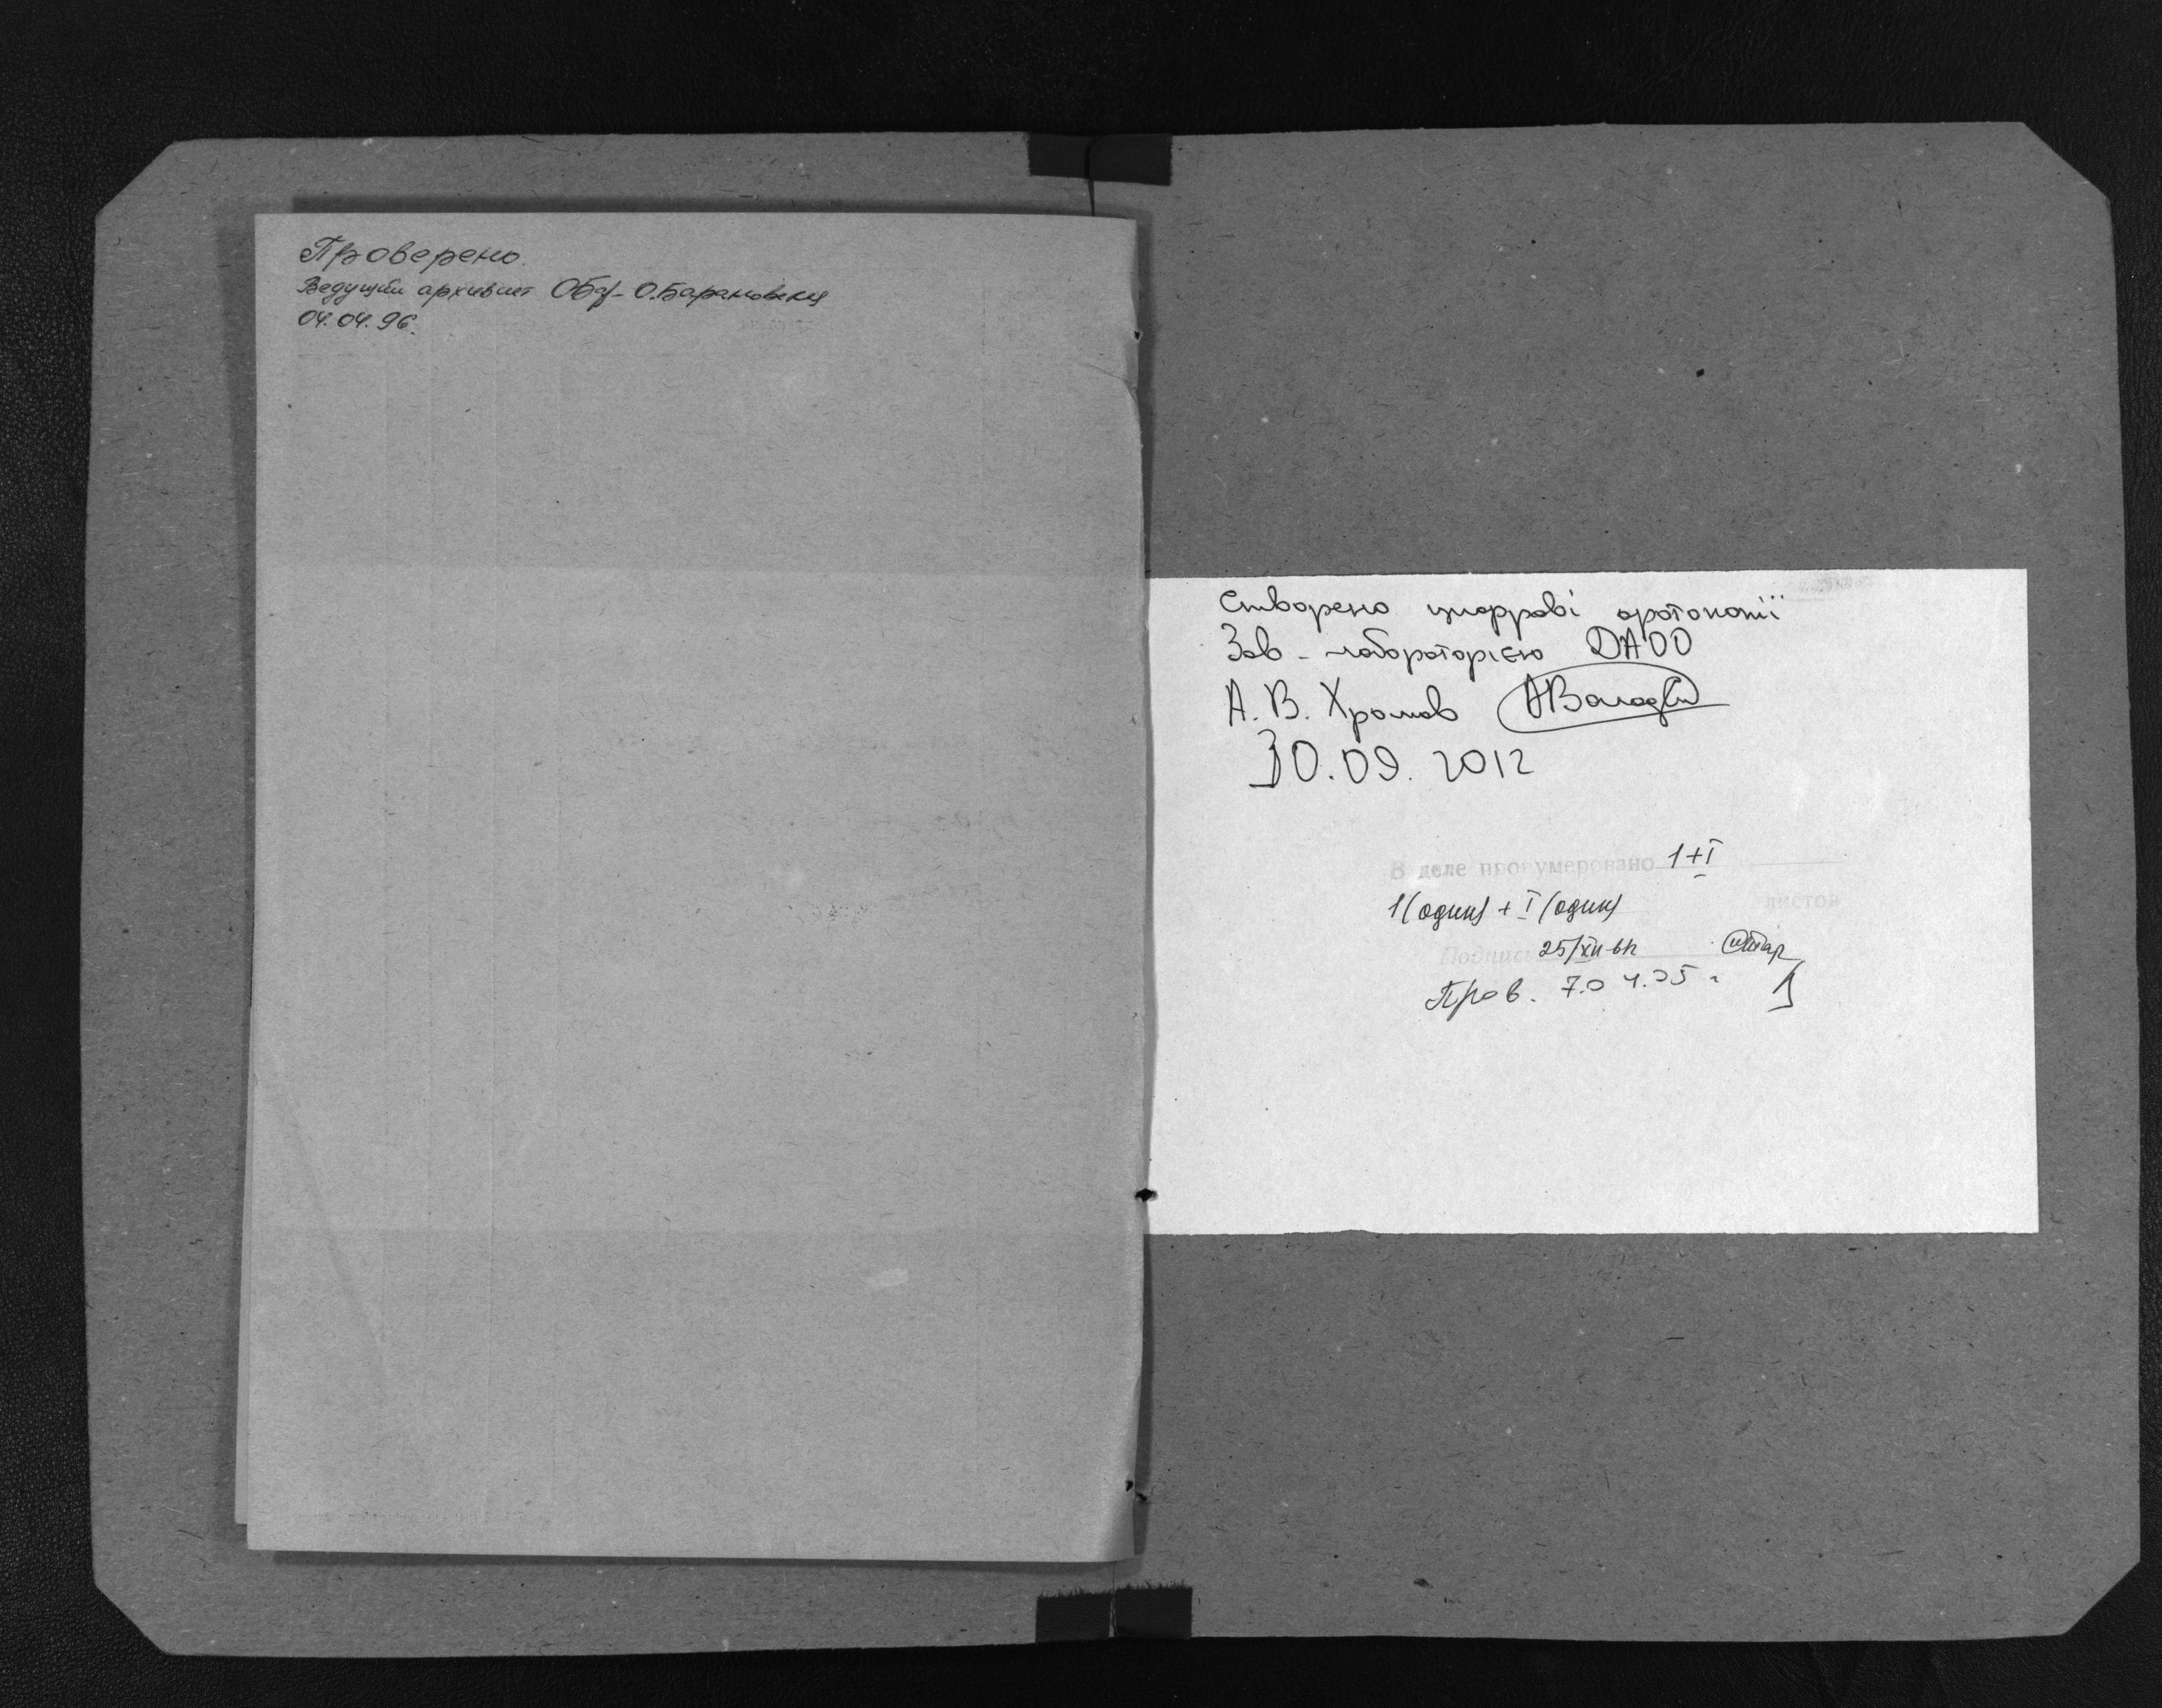 Проверено.
Ведущий архивист О. Барановская
04.04.96.
Створено цифрові фотокопії
Зав. лабораторією ДАОО
А. В. Хромов
30.09.2012
В деле пронумеровано 1+I
1(один) + I (один) листов
Подпись 25/XII
Пров. 7.04.